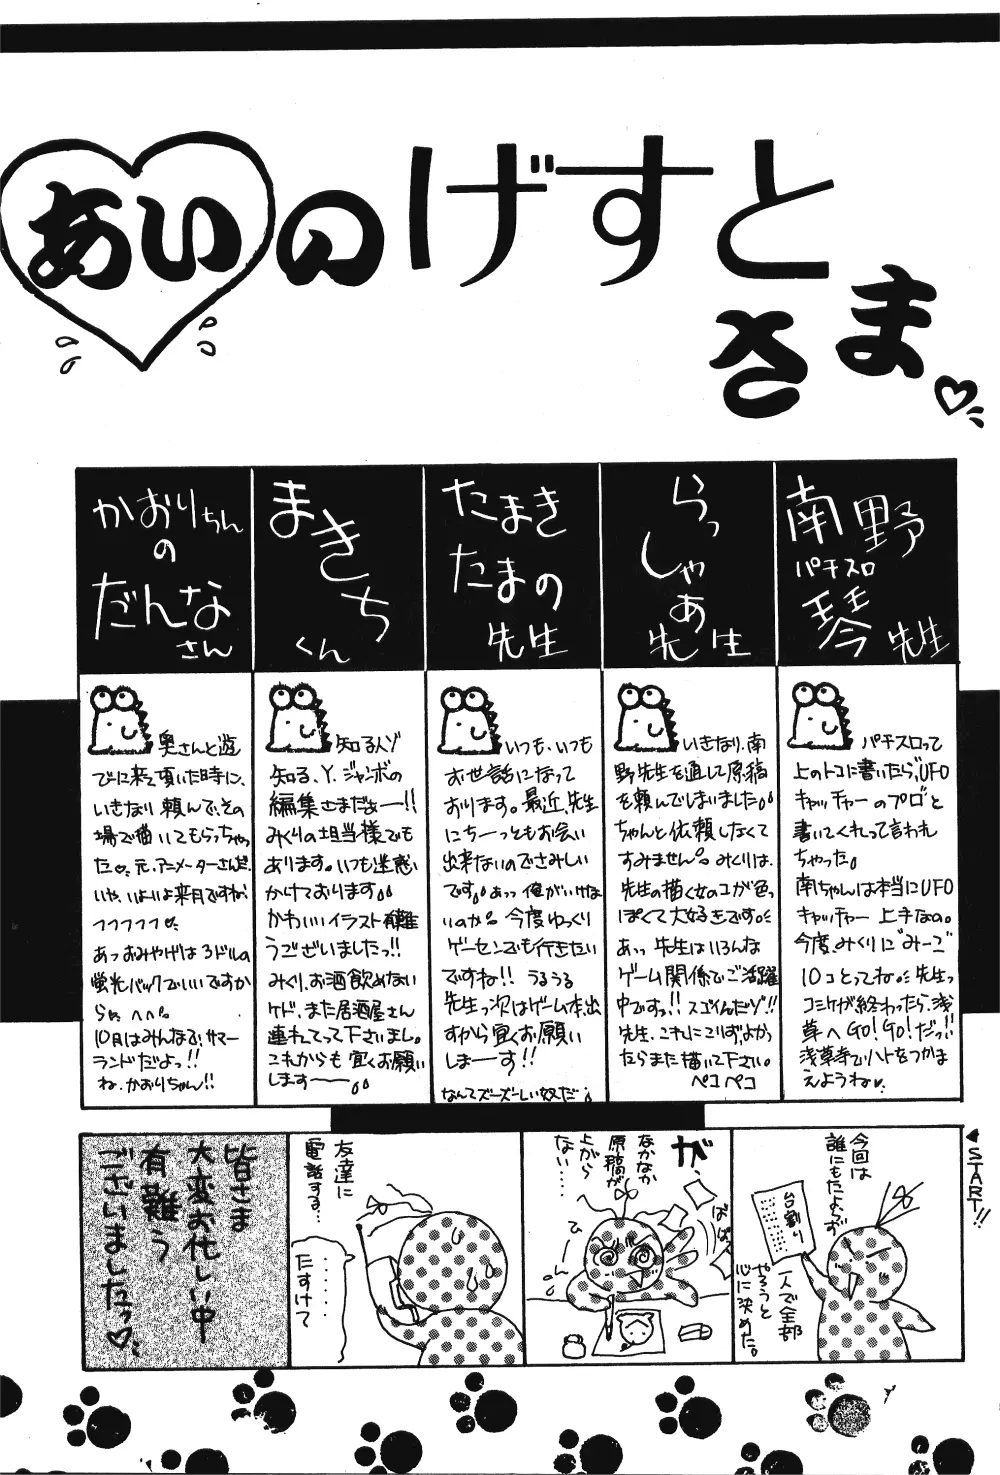 あいのげすと
さま
南野
パチスロ
琴先生
パチスロって
上のトコに書いたら、UFO
キャッチャーのプロ"と
書いてくれって言われ
ちゃった。
南ちゃんは本当にUFO
キャッチャー上手なの。
今度、みくりに"みーご"
10コとってね。先生っ
コミケが終わったら、浅
草へGO!GO!だっ!!
浅草寺でハトをつかま
えようね♡
らっ
しゃあ
先生
いきなり、南
野先生を通して原稿
を頼んでしまいました。
ちゃんと依頼しなくて
すみません。みくりは、
先生の描く女のコが色っ
ぽくて大好きです
あっ先生はいろんな
ゲーム関係でご活躍
中ですっ!!スゴイんだゾ!!
先生、これにこりず、よかっ
たらまた描いて下さい。
ペコペコ
たまき
たまの
先生
いつも、いつも
お世話になって
おります。最近、先生
にちーっともお会い
出来ないのでさみしい
です。あっ俺がいけな
いのか。今度ゆっくり
ゲーセンでも行きたい
ですね!!うるうる
先生っ次はゲーム本出
すから宜くお願い
しまーす!!
なんてズーズーしい奴だ
まきち
くん
知る人ゾ
知る、Y.ジャンボの
編集さまだぁー!!
みくりの担当様でも
あります。いつも迷惑
かけております
かわいいイラスト有難
うございましたっ!!
みくり、お酒飲めない
ケド、また居酒屋さん
連れてって下さいまし。
これからも宜くお願い
します――。
かおりちん
の
だんな
さん
奥さんと遊
びに来て頂いた時に、
いきなり頼んで、その
場で描いてもらっちゃっ
た♡元、アニメーターさんだ。
いや、いよいよ来月ですねっ
フフフフフ♡
あっおみやげは3ドルの
蛍光バックでいいですか
らぁ。へへ。
10月はみんなで、サマー
ランドだよっ!!
ね、かおりちゃん!!
START!!
今回は
誰にもたよらず
台割り
一人で全部
やろうと
心に決めた。
が、
なかなか
原稿が
上がら
ない……
ばばっ
ひーん
友達に
電話する…
・・・・・
たすけて
皆さま
大変お忙しい中
有難う
ございましたっ♡